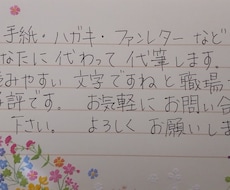 手紙・ハガキ・ファンレターなど
なたに代わって代筆します.
みやすい文字ですねと職場
好評です。 お気軽にお問い合
下さい。 よろしくお願いしま